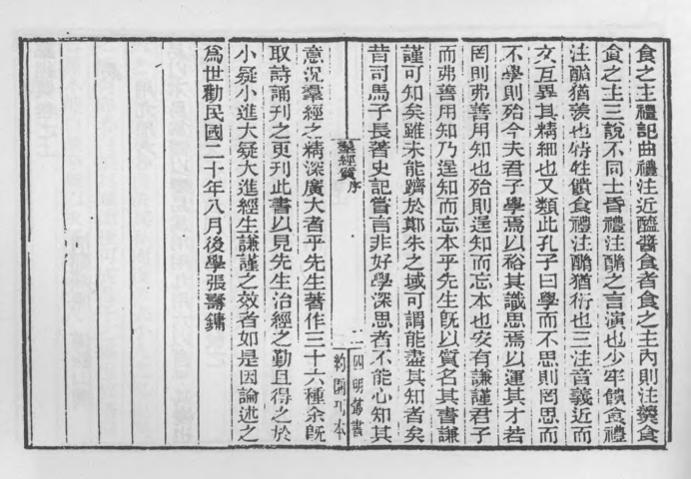 食之主禮記曲禮注近醯醬食者食之主內則注羹食
食之主三說不同士昏禮注酳之言演也少牢饋食禮
注酳猶羨也特牲饋食禮注酳猶衍也三注音義近而
文互異其精細也又類此孔子曰學而不思則罔思而
不學則殆今夫君子學焉以裕其識思焉以運其才若
罔則弗善用知也殆則逞知而忘本也安有謙謹君子
而弗善用知乃逞知而忘本乎先生既以質名其書謙
謹可知矣雖未能躋於鄭朱之域可謂能盡其知者矣
昔司馬子長著史記嘗言非好學深思者不能心知其
羣經質 序
二 四明叢書
約園刊本
意況羣經之精深廣大者乎先生著作三十六種余既
取詩誦刊之更刊此書以見先生治經之勤且得之於
小疑小進大疑大進經生謙謹之效者如是因論述之
為世勸民國二十年八月後學張壽鏞